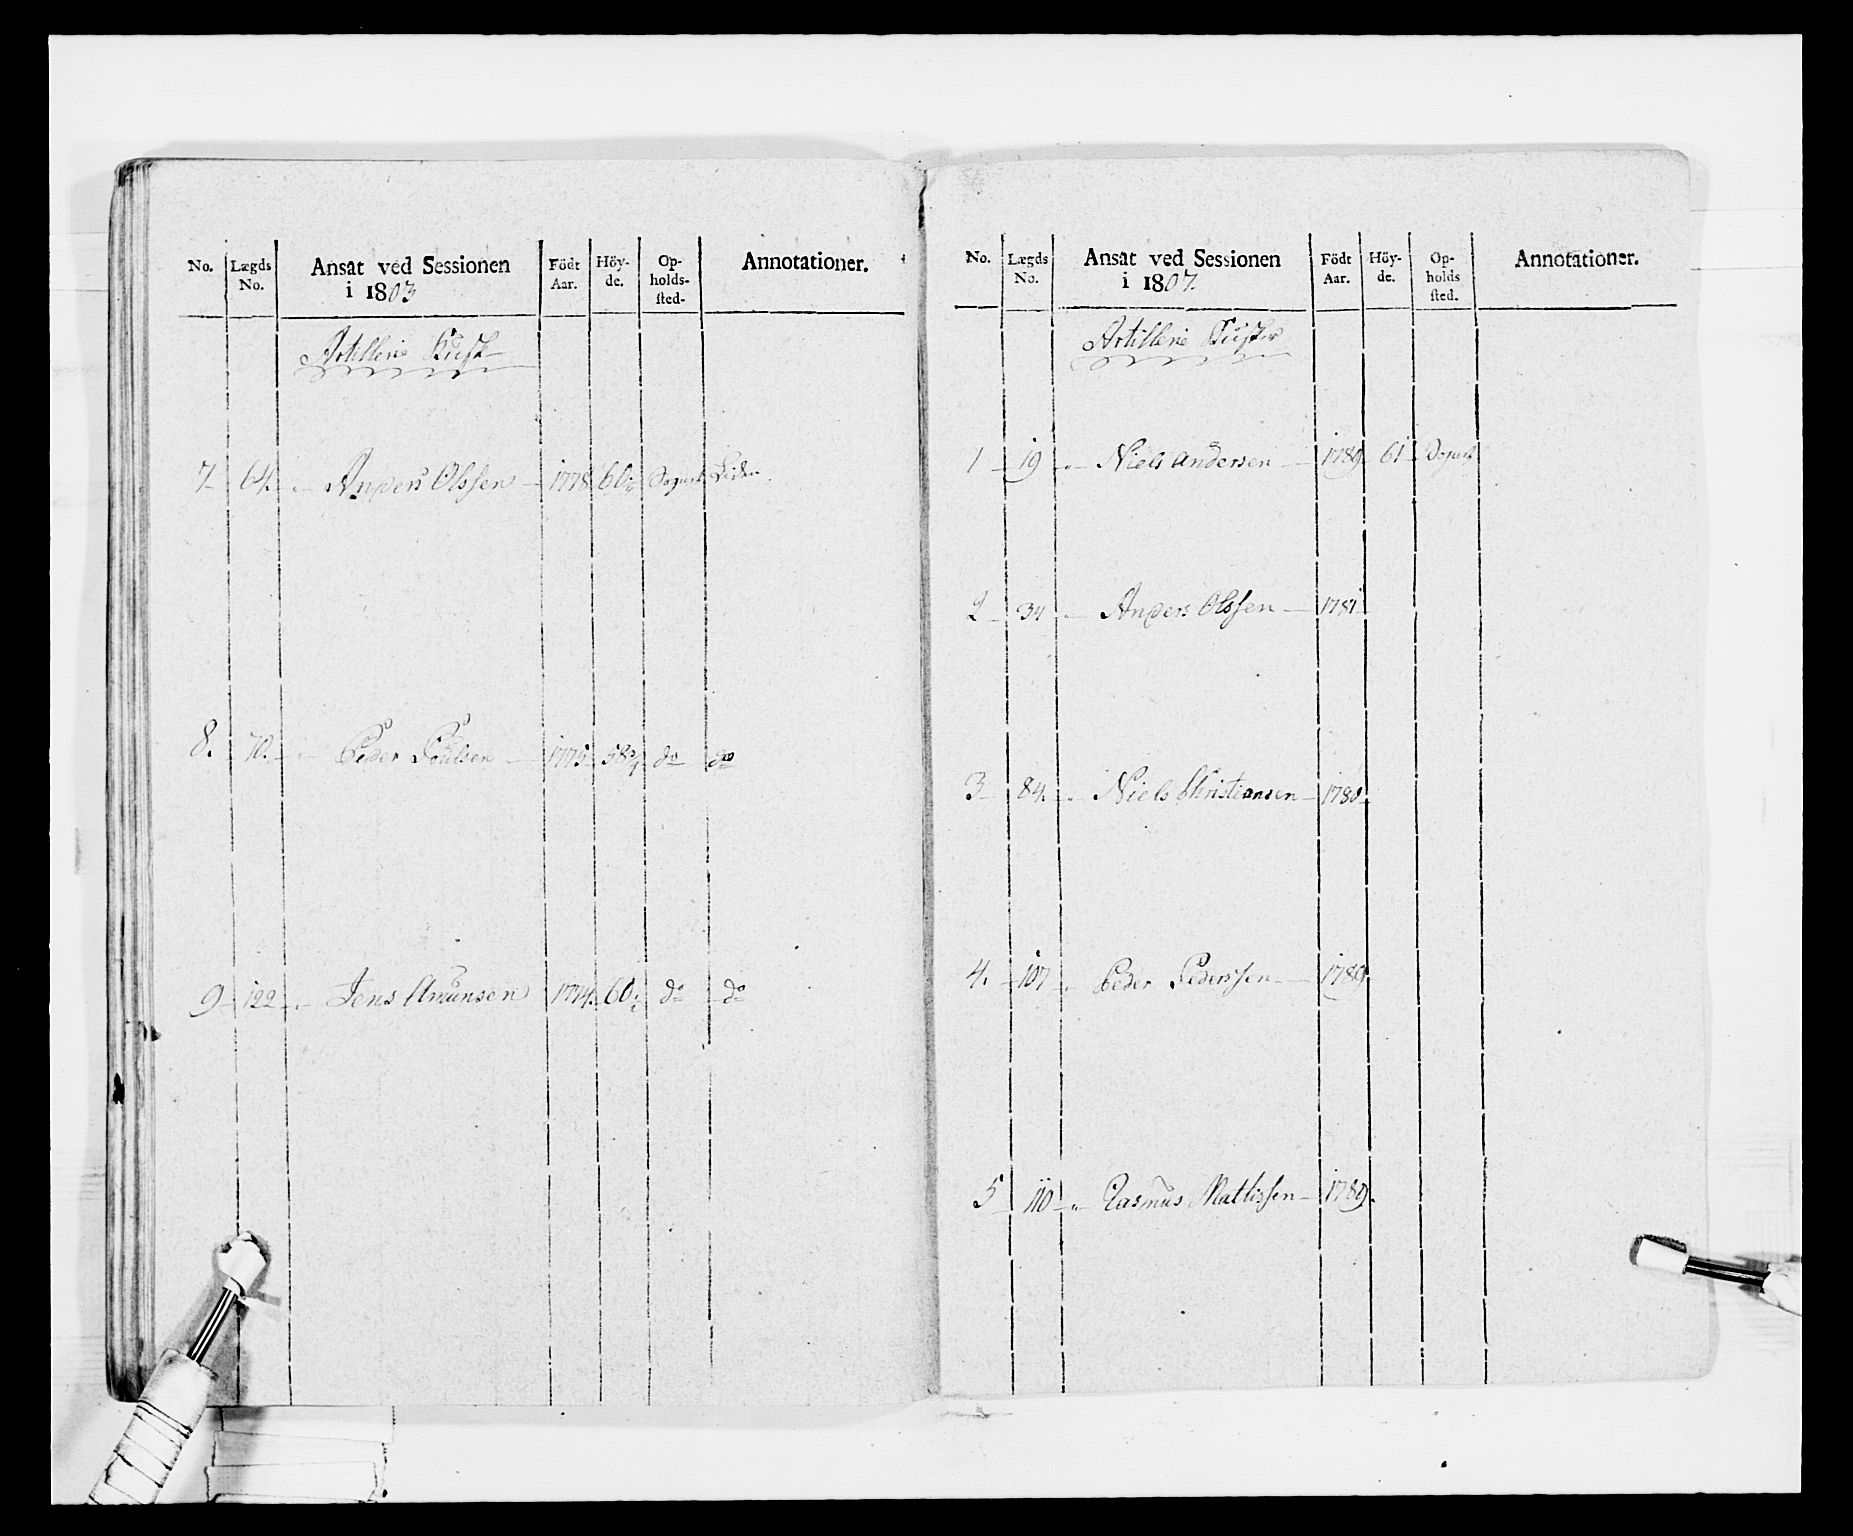 No. Lægds No. Ansat ved Sessionen i 1803 Födt Aar. Höy-de. Op-holds-sted- Annotationer.
Artillerie Kusk
7 64. Anders Olssen 1778 60
8. 70. Peder Poulsen 1775 58 do do
9 122 Jens Amunsen 1774. 60 do do
No. Lægds No. Ansat ved Sessionen i 1807. Födt Aar. Höy-de. Op-holds sted. Annotationer.
Artillerie Kusker
1 19 Niels Andersen 1789 61
2 34 Anders Olssen 1781
3 84. Niels Christiansen 1780
4. 107 Peder Pederssen 1789
5 110 Rasmus Mattissen 1789.